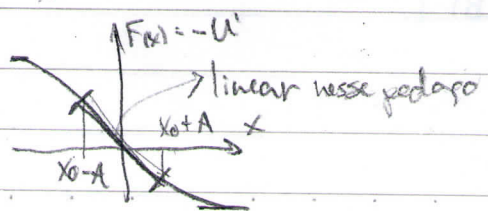 F(x) = -U'
linear nesse pedaço
x₀+A
x
x₀-A